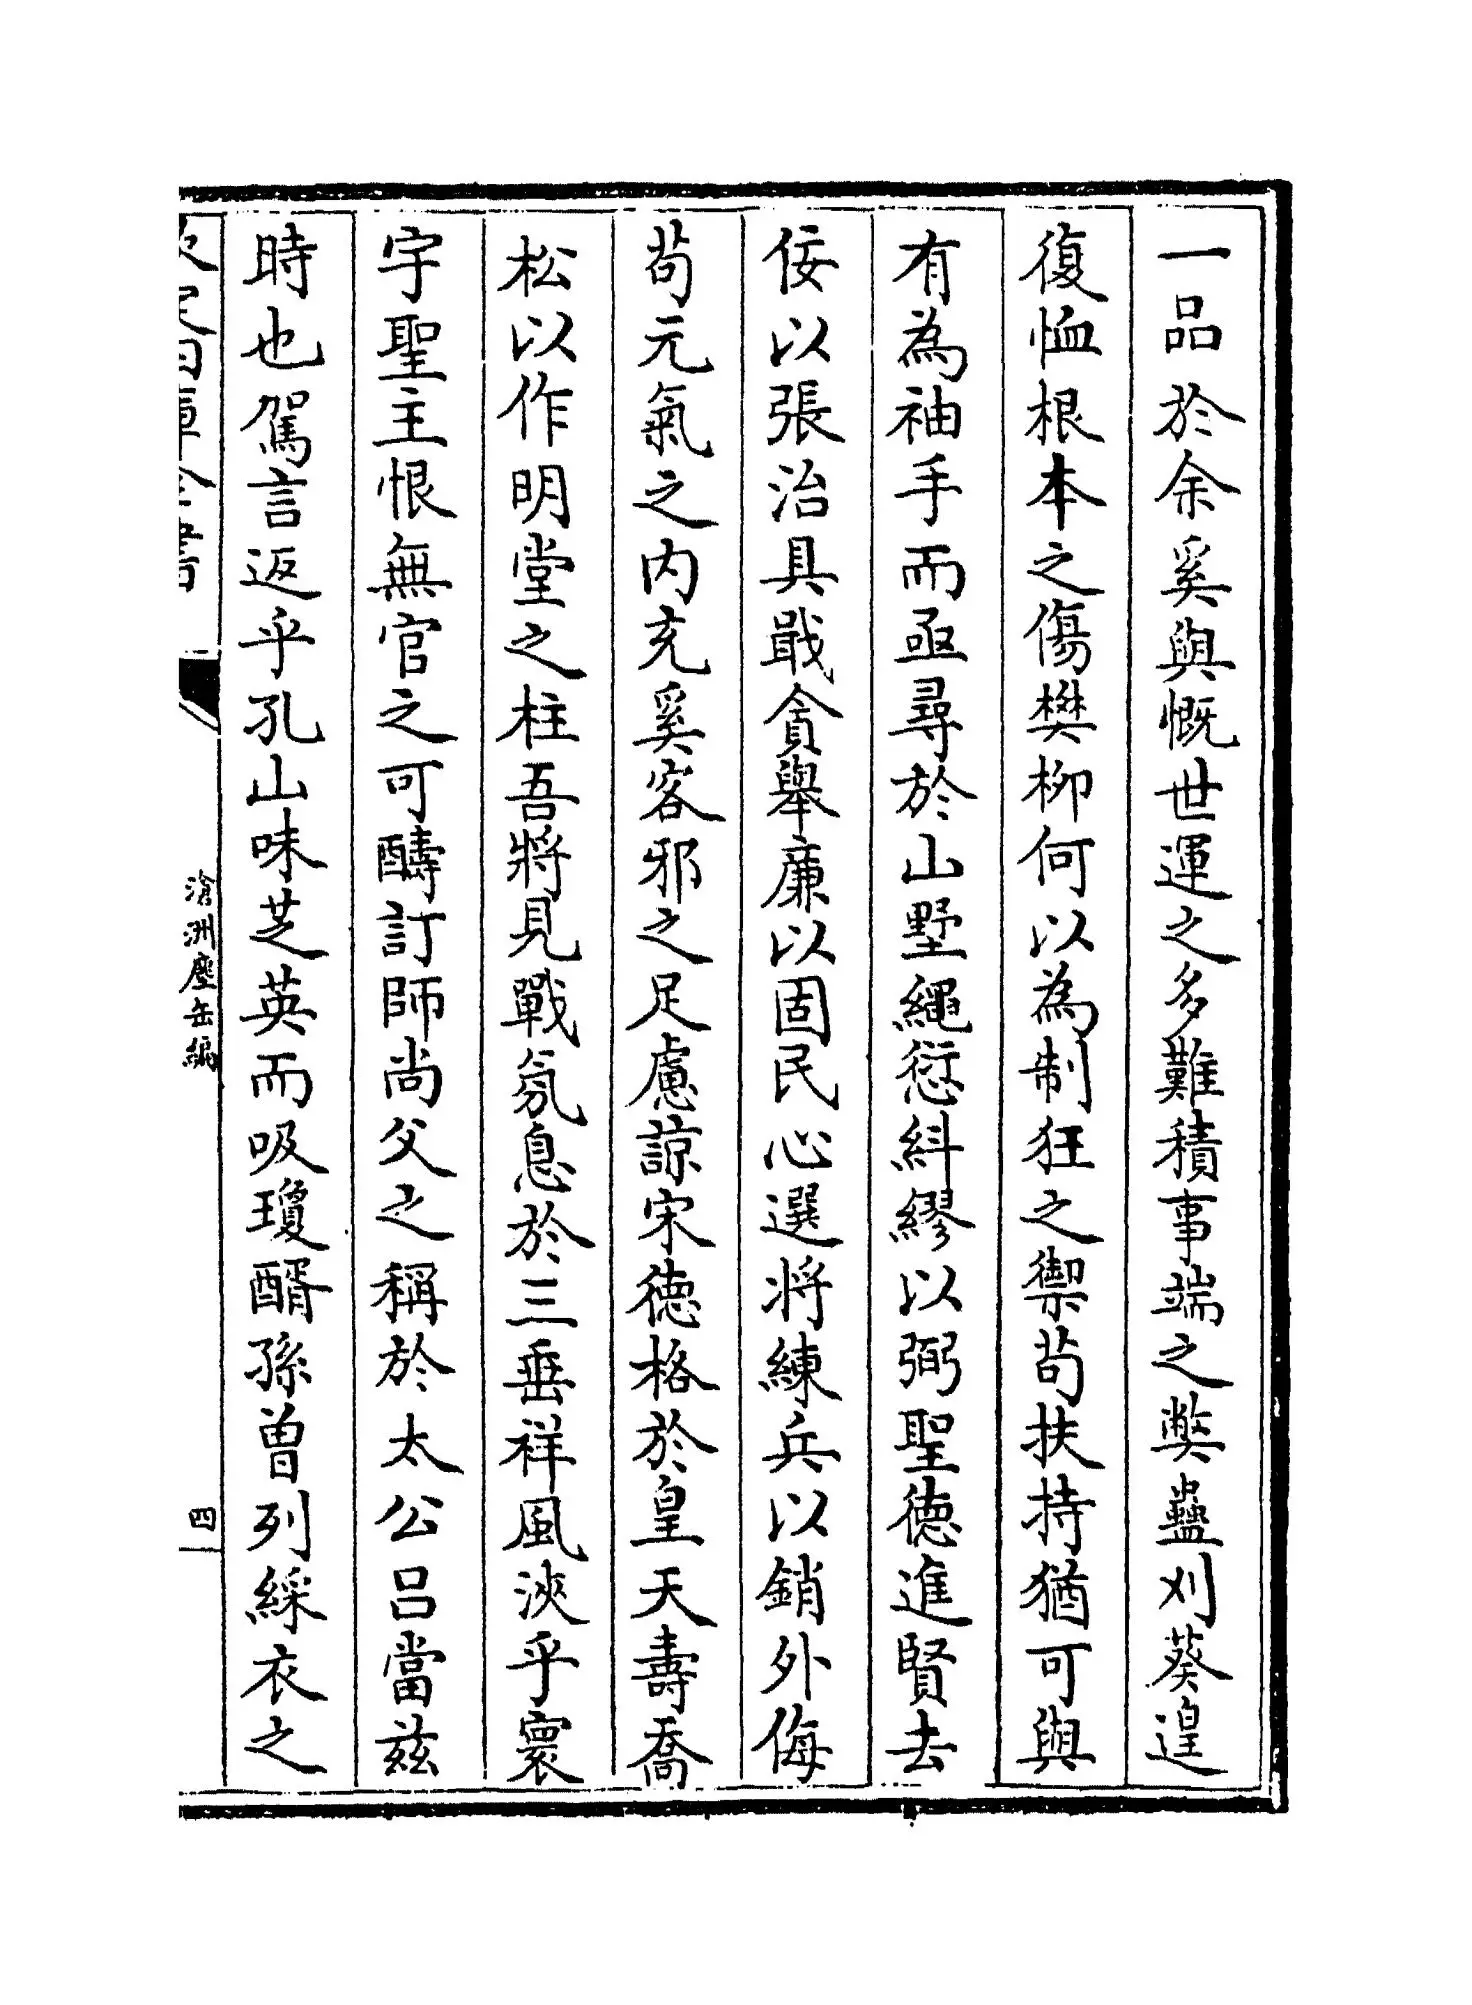 一品於余奚與慨世運之多難積事端之獘蠱刈葵遑
復恤根本之傷樊栁何以為制狂之禦茍扶持猶可與
有為袖手而亟尋於山墅繩愆糾繆以弼聖徳進賢去
佞以張治具戢貪舉亷以固民心選將練兵以銷外侮
茍元氣之内充奚客邪之足慮諒宋徳格於皇天壽喬
松以作明堂之柱吾將見戰氛息於三垂祥風浹乎寰
宇聖主恨無官之可醻訂師尚父之稱於太公吕當兹
時也駕言返乎孔山味芝英而吸瓊醑孫曽列綵衣之
欽定四庫全書
滄洲塵缶編
四